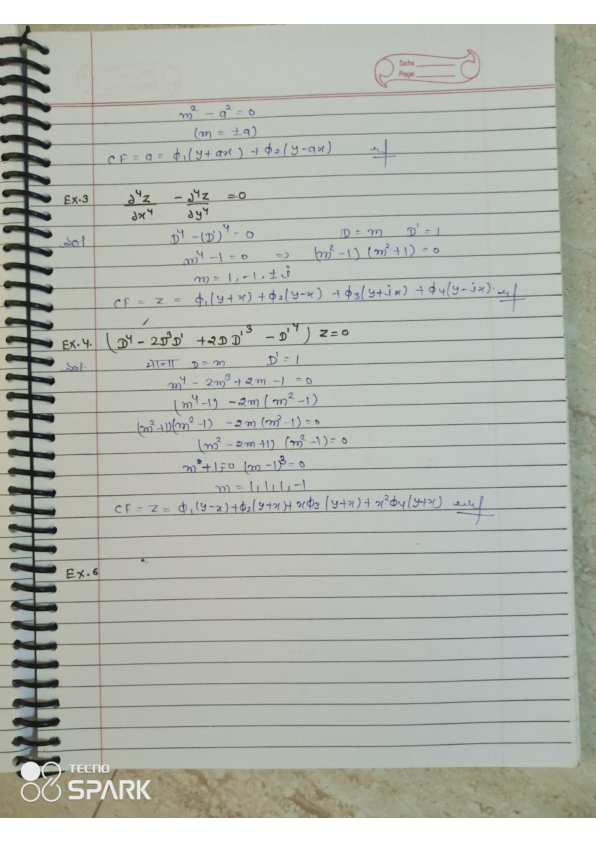 Date
Page
m² - a² = 0
(m = ±a)
CF = a = ϕ₁(y+ax) + ϕ₂(y-ax)
Ex.3 ∂⁴z/∂x⁴ - ∂⁴z/∂y⁴ = 0
Sol D⁴ - (D')⁴ = 0 D = m D' = 1
m⁴ - 1 = 0 => (m² - 1) (m² + 1) = 0
m = 1, -1, ± i
CF = z = ϕ₁(y+x) + ϕ₂(y-x) + ϕ₃(y+ix) + ϕ₄(y-ix).
Ex.4. (D⁴ - 2D³D' + 2DD'³ - D'⁴) z = 0
Sol. माना D = m D' = 1
m⁴ - 2m³ + 2m - 1 = 0
(m⁴-1) - 2m (m² - 1)
(m²+1)(m²-1) - 2m (m²-1) = 0
(m² - 2m + 1) (m² - 1) = 0
m + 1 = 0 (m - 1)³ = 0
m = 1, 1, 1, -1
CF = z = ϕ₁(y-x) + ϕ₂(y+x) + xϕ₃(y+x) + x²ϕ₄(y+x)
Ex.6
TECNO
SPARK